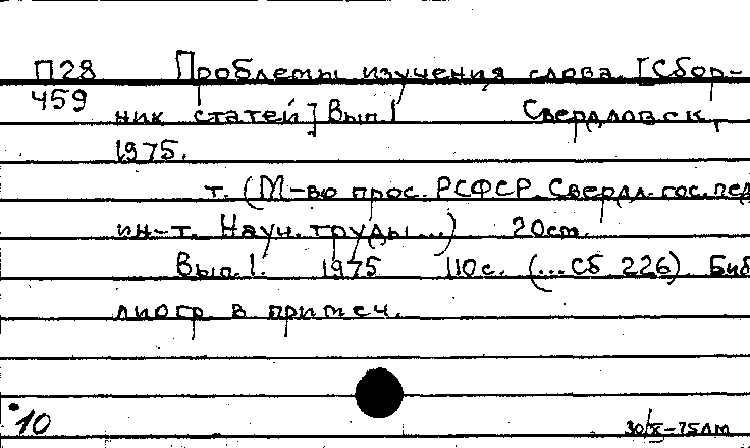 П28 Проблемы изучения слова. [Сбор-
459 ник статей] Вып. 1 Свердловск,
1975.
т. (М-во прос. РСФСР. Свердл. гос. пед.
ин-т. Науч. труды...) 20см.
Вып. 1. 1975 110с. (...Сб 226). Биб
лиогр в примеч.
10 30/X-75